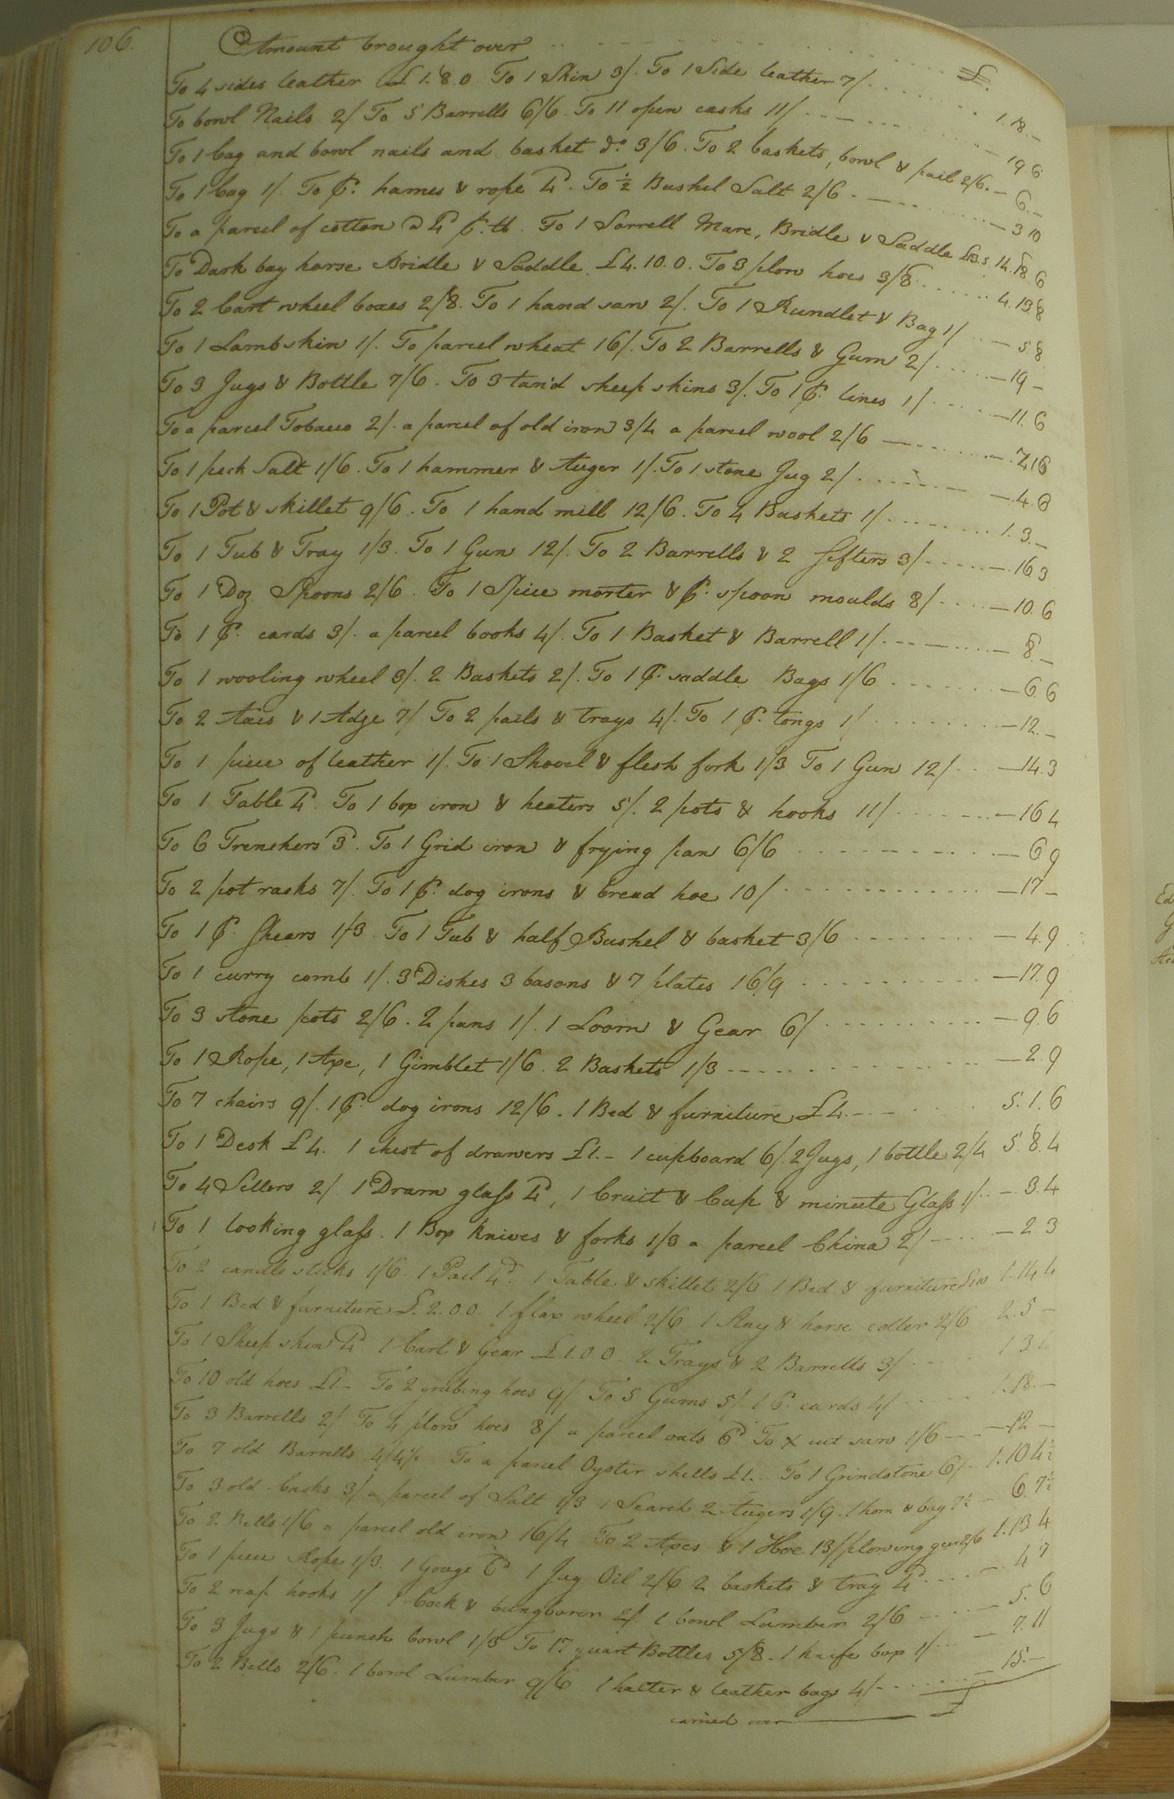 106.
Amount brought over £.
To 4 sides leather £1.8.0 To 1 Skin 3/. To 1 Side leather 7/. 1.18.-
To bowl Nails 2/ To 5 Barrells 6/6. To 11 open casks 11/ 19 6
To 1 bag and bowl nails and basket do. 3/6. To 2 baskets, bowl & pail 2/6. - 6.-
To 1 bag 1/. To pr. hames & rope 4d. To ½ Bushel Salt 2/6 - 3 10
To a parcel of cotton @ 4d pr. lb. To 1 Sorrell Mare, Bridle & Saddle 14.18.6
To Dark bay horse Bridle & Saddle £4.10.0. To 3 plow hoes 3/8 4.13 8
To 2 Cart wheel boxes 2/8. To 1 hand saw 2/. To 1 Rundlet & Bag 1/ - 5 8
To 1 Lambskin 1/. To parcel wheat 16/. To 2 Barrells & Gum 2/ - 19 -
To 3 Jugs & Bottle 7/6. To 3 tan'd sheep skins 3/. To 1 pr. lines 1/ - 11.6
To a parcel Tobacco 2/. a parcel of old iron 3/4 a parcel wool 2/6 - 7.10
To 1 peck Salt 1/6. To 1 hammer & Auger 1/. To 1 stone Jug 2/ - 4.6
To 1 Pot & skillet 9/6. To 1 hand mill 12/6. To 4 Baskets 1/ 1.3.-
To 1 Tub & Tray 1/3. To 1 Gun 12/. To 2 Barrells & 2 sifters 3/ - 16 3
To 1 Doz Spoons 2/6. To 1 Spice morter & pr. spoon moulds 8/ - 10.6
To 1 pr. cards 3/. a parcel books 4/. To 1 Basket & Barrell 1/ - 8 -
To 1 wooling wheel 3/. 2 Baskets 2/. To 1 pr. saddle Bags 1/6 - 6 6
To 2 Axes & 1 Adze 7/ To 2 pails & trays 4/. To 1 pr. tongs 1/ - 12.-
To 1 piece of leather 1/. To 1 Shovel & flesh fork 1/3 To 1 Gun 12/ - 14.3
To 1 Table 4d. To 1 box iron & heaters 5/. 2 pots & hooks 11/ - 16 4
To 6 Trenchers 3d. To 1 Grid iron & frying pan 6/6 - 6 9
To 2 pot racks 7/. To 1 pr. dog irons & bread hoe 10/ - 17 -
To 1 pr. Shears 1/3 To 1 Tub & half Bushel & basket 3/6 - 4.9
To 1 curry comb 1/. 3 Dishes 3 basons & 7 plates 16/9 - 17.9
To 3 stone pots 2/6. 2 pans 1/. 1 Loom & Gear 6/ - 9.6
To 1 Rope, 1 Axe, 1 Gimblet 1/6. 2 Baskets 1/3 - 2.9
To 7 chairs 9/. 1 pr. dog irons 12/6. 1 Bed & furniture £4. 5.1.6
To 1 Desk £4. 1 chest of drawers £1.- 1 cupboard 6/. 2 Jugs, 1 bottle 2/4 5.8.4
To 4 Sellers 2/ 1 Dram glass 4d, 1 Cruit & Cup & minute Glass 1/ - 3.4
To 1 looking glass. 1 Box knives & forks 1/3 a parcel China 2/ - 2 3
To 2 candle sticks 1/6. 1 Pail 4d. 1 Table & skillet 2/6 1 Bed & furniture 1.14 4
To 1 Bed & furniture £2.0 0. 1 flax wheel 2/6 1 Slay & horse coller 2/6 2.5 -
To 1 Sheep skin 4d 1 Cart & Gear £1.0 0. 2 Trays & 2 Barrells 3/ 1 3 4
To 10 old hoes £1.- To 2 grubing hoes 9/ To 5 Gums 5/. 1 pr. cards 4/ 1.18.-
To 3 Barrells 2/ To 4 plow hoes 8/ a parcel oats 6d To x cut saw 1/6 - 12 -
To 7 old Barrells 4/4½ To a parcel Oyster shells £1.- To 1 Grindstone 6/ 1.10 4½
To 3 old Casks 3/ a parcel of Salt 1/3 1 Search 2 Augers 1/9. 1 horn & bag 7½ 6.7½
To 2 Bells 1/6 a parcel old iron 16/4 To 2 Axes & 1 Hoe 13/ plowing gear 2/6 1.13 4
To 1 piece Rope 1/3. 1 Gouge 6d 1 Jug Oil 2/6 2 baskets & tray 4d 4 7
To 2 reap hooks 1/ 1 Cock & bungborer 2/ 1 bowl Lumber 2/6 5.6
To 3 Jugs & 1 punch bowl 1/3 To 17 quart Bottles 5/8. 1 knife box 1/ 7.11
To 2 Bells 2/6. 1 bowl Lumber 9/6 1 halter & leather bags 4/ - 15.-
carried over £